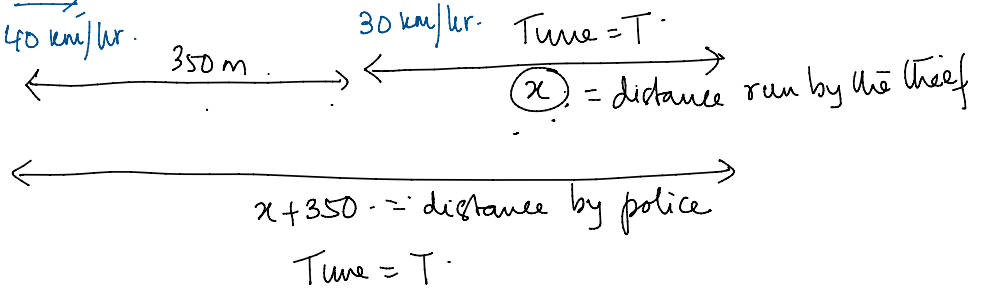 40 km/hr.
30 km/hr.
Time = T.
350 m.
x = distance run by the thief
x + 350 = distance by police
Time = T.